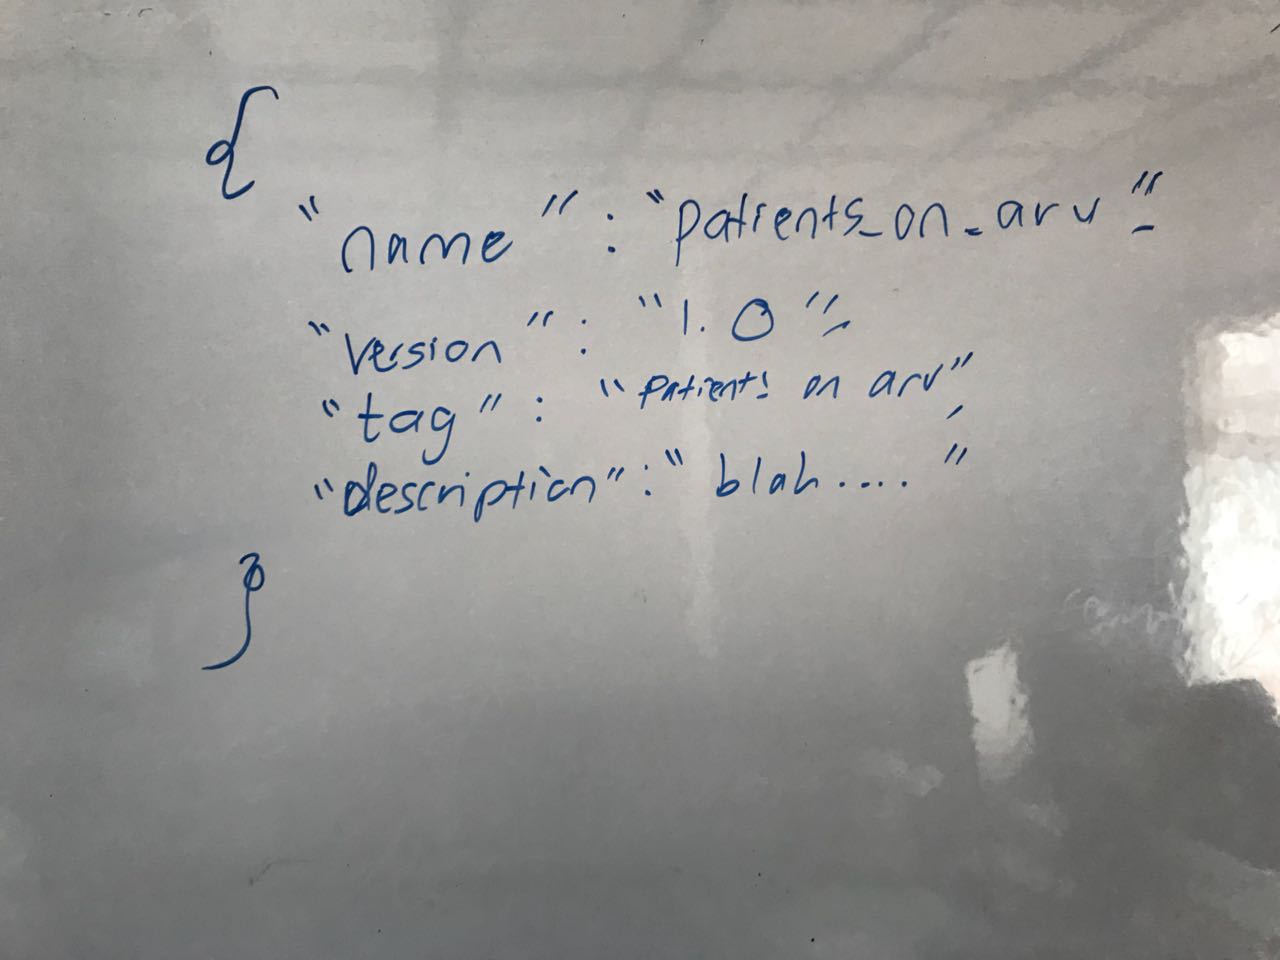 {
"name" : "patients_on_arv",
"version" : "1.0",
"tag" : "patients on arv",
"description" : "blah...."
}